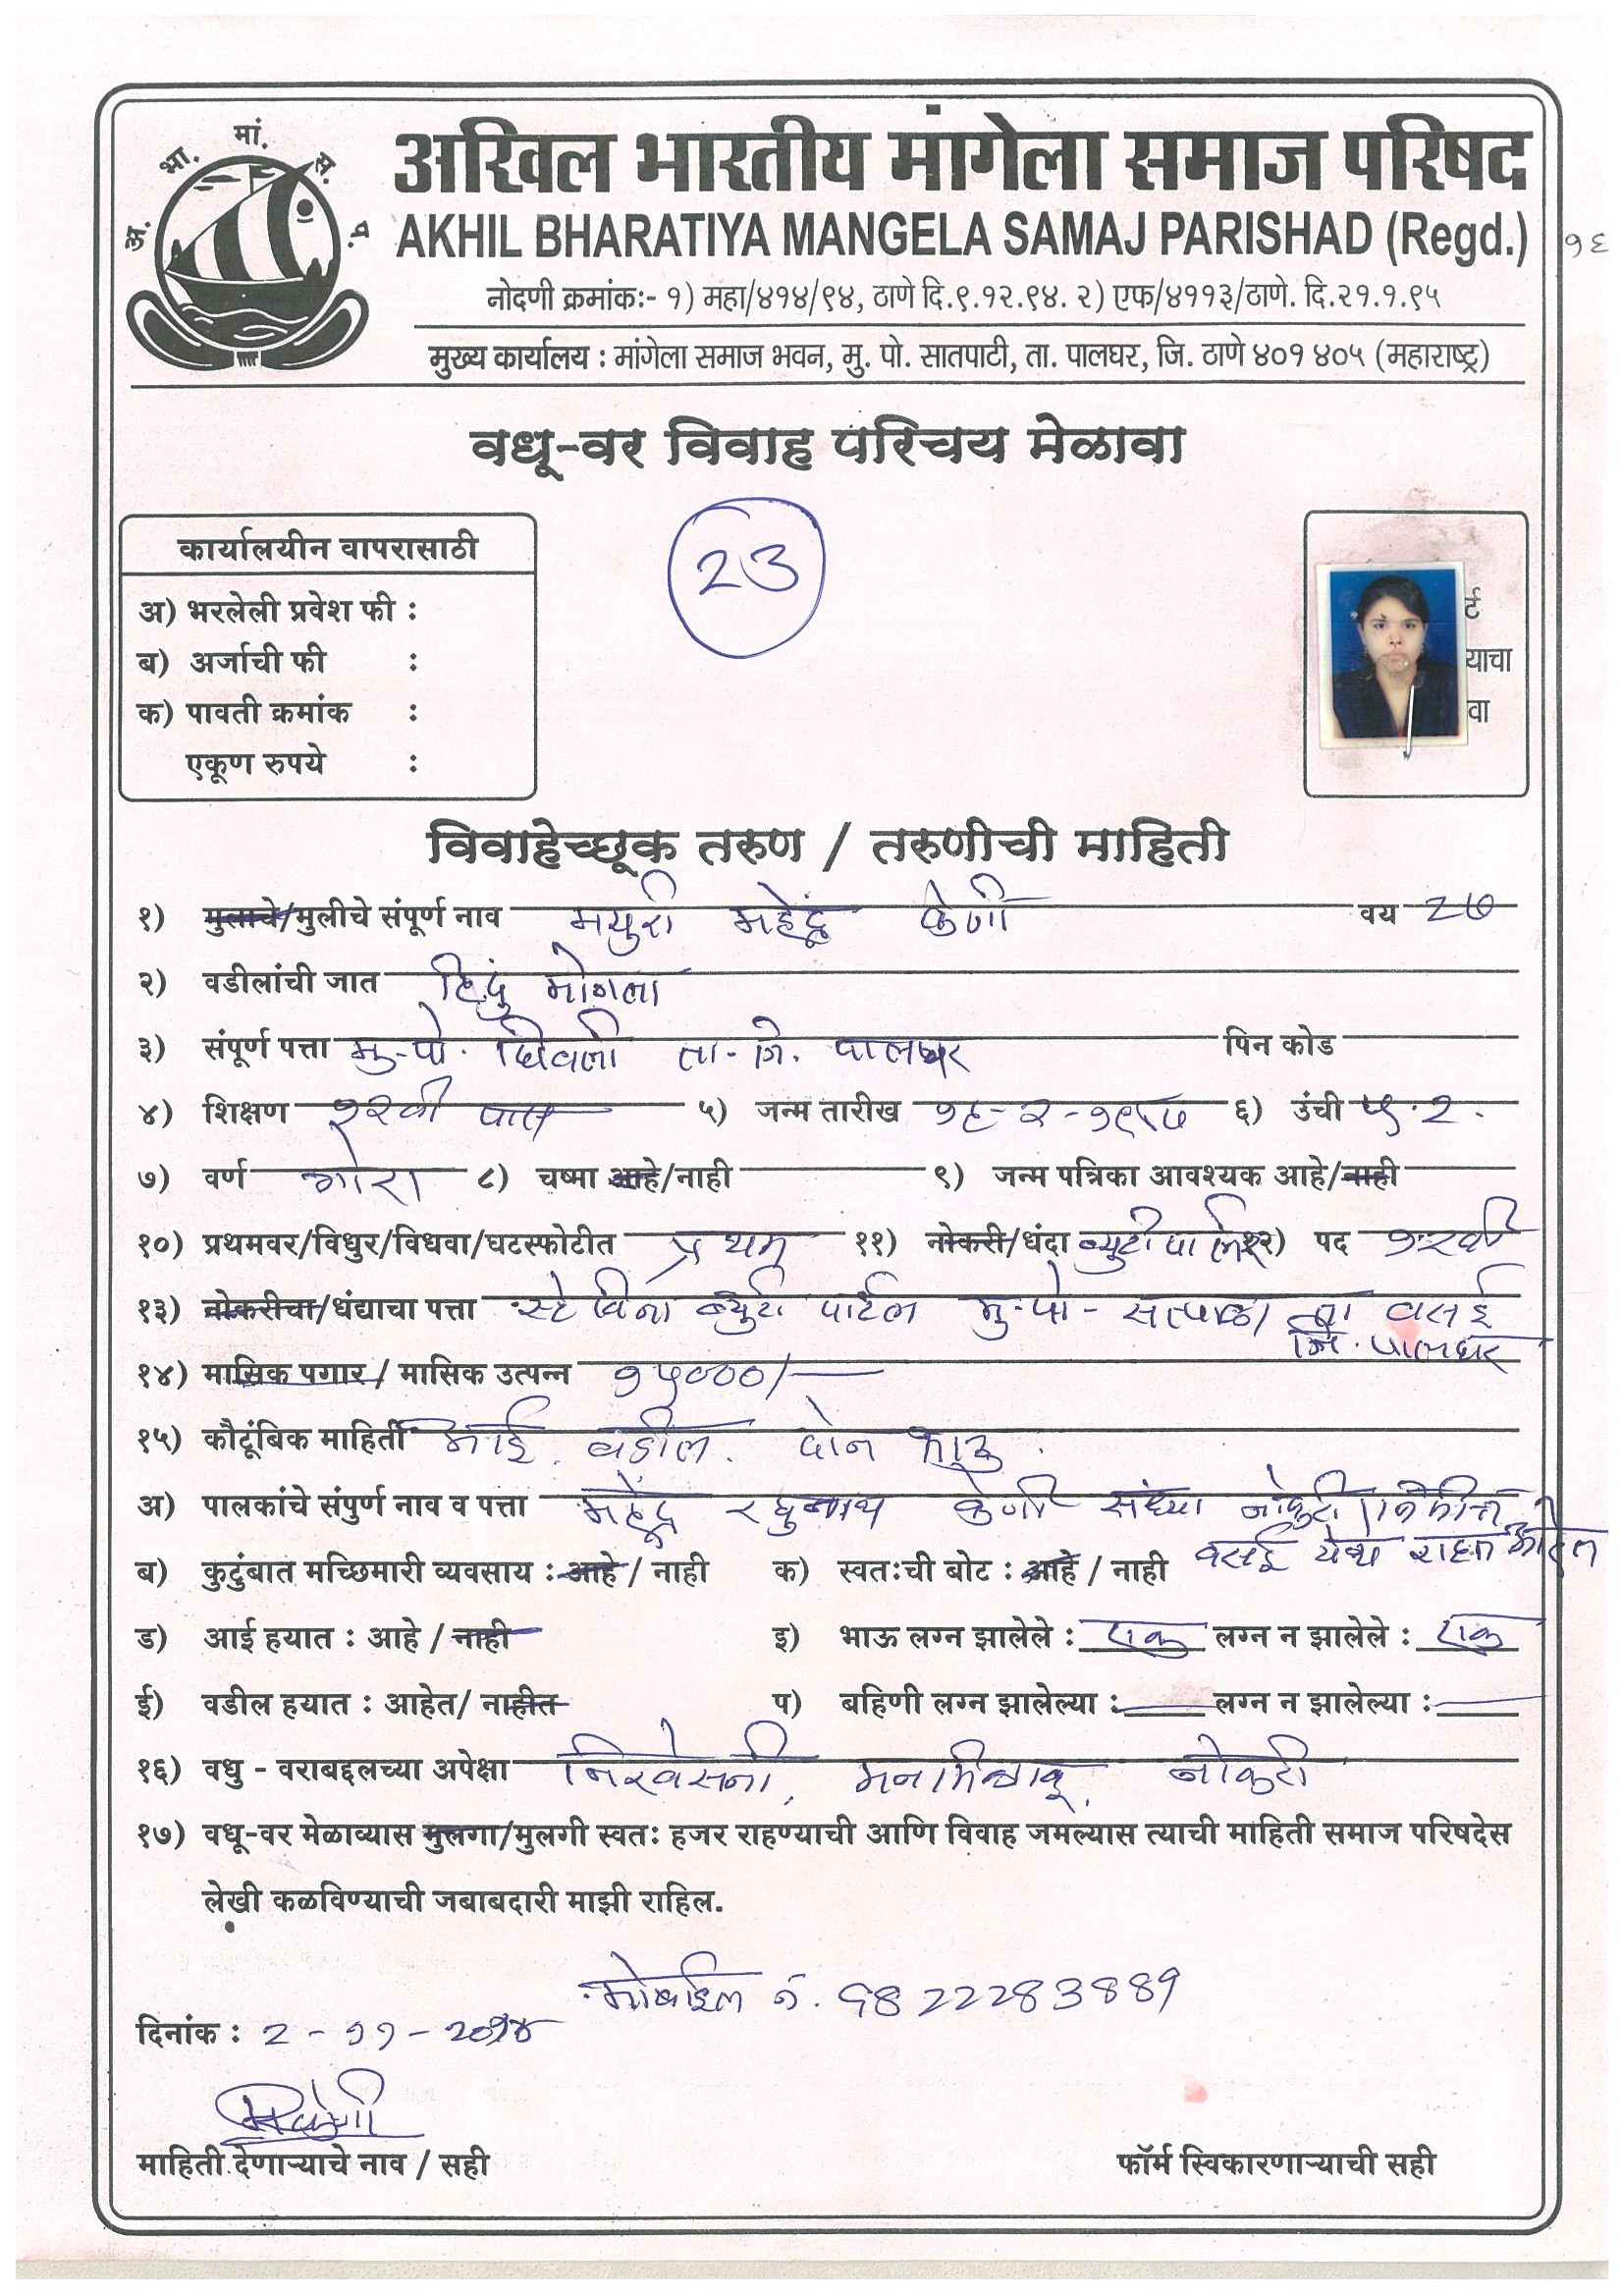 अ. भा. मां. स. प.
अखिल भारतीय मांगेला समाज परिषद
AKHIL BHARATIYA MANGELA SAMAJ PARISHAD (Regd.)
१६
नोदणी क्रमांकः- १) महा/४१४/९४, ठाणे दि.९.१२.९४. २) एफ/४११३/ठाणे. दि.२१.१.९५
मुख्य कार्यालय : मांगेला समाज भवन, मु. पो. सातपाटी, ता. पालघर, जि. ठाणे ४०१ ४०५ (महाराष्ट्र)
वधू-वर विवाह परिचय मेळावा
23
कार्यालयीन वापरासाठी
अ) भरलेली प्रवेश फी :
ब) अर्जाची फी :
क) पावती क्रमांक :
एकूण रुपये :
र्ट
याचा
वा
विवाहेच्छूक तरुण / तरुणीची माहिती
१) मुलाचे/मुलीचे संपूर्ण नाव मयुरी महेंद्र केणी वय 27
२) वडीलांची जात हिंदु मांगेला
३) संपूर्ण पत्ता मु-पो. ता-जि. पालघर पिन कोड
४) शिक्षण १२वी पास ५) जन्म तारीख ६) उंची ५.२.
७) वर्ण गोरा ८) चष्मा आहे/नाही ९) जन्म पत्रिका आवश्यक आहे/नाही
१०) प्रथमवर/विधुर/विधवा/घटस्फोटीत प्रथम ११) नोकरी/धंदा ब्युटी पार्लर १२) पद १२वी
१३) नोकरीचा/धंद्याचा पत्ता ब्युटी पार्टल मु-पो- सत्पाळा ता वसई
जि. पालघर
१४) मासिक पगार / मासिक उत्पन्न १५०००/-
१५) कौटूंबिक माहिती आई. वडील. दोन भाऊ.
अ) पालकांचे संपुर्ण नाव व पत्ता महेंद्र रघुनाथ केणी संध्या नोकरी निमीत्त
वसई येथे राहत आहेत
ब) कुटुंबात मच्छिमारी व्यवसाय : आहे / नाही क) स्वतःची बोट : आहे / नाही
ड) आई हयात : आहे / नाही इ) भाऊ लग्न झालेले : एक लग्न न झालेले : एक
ई) वडील हयात : आहेत/ नाहीत प) बहिणी लग्न झालेल्या : लग्न न झालेल्या :
१६) वधु - वराबद्दलच्या अपेक्षा निरवेसनी, नोकरी
१७) वधू-वर मेळाव्यास मुलगा/मुलगी स्वतः हजर राहण्याची आणि विवाह जमल्यास त्याची माहिती समाज परिषदेस
लेखी कळविण्याची जबाबदारी माझी राहिल.
मोबाईल नं. 9822283889
दिनांक : 2-११-२०१४
माहिती देणाऱ्याचे नाव / सही फॉर्म स्विकारणाऱ्याची सही